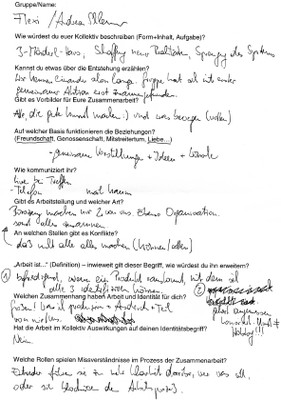 Gruppe/Name:
Flexi / Andrea
Wie würdest du euer Kollektiv beschreiben (Form+Inhalt, Aufgabe)?
3-Mäderl-Haus, Shaffung neuer Realitäten, Sprengung des Systems
Kannst du etwas über die Entstehung erzählen?
Wir kennen einander schon lange. Gruppe hat sich mit erster
gemeinsamer Aktion erst zusammengefunden.
Gibt es Vorbilder für Eure Zusammenarbeit?
Alle, die gute Kunst machen :) und was bewegen (wollen)
Auf welcher Basis funktionieren die Beziehungen?
(Freundschaft, Genossenschaft, Mitstreitertum, Liebe...)
- gemeinsame Vorstellungen + Ideen +
Wie kommuniziert ihr?
live bei Treffen
- Telefon mail
Gibt es Arbeitsteilung und welcher Art?
machen wir 2 Organisation
sonst alles zusammen
An welchen Stellen gibt es Konflikte?
das alle alles machen (können/wollen)
„Arbeit ist..." (Definition) – inwieweit gilt dieser Begriff, wie würdest du ihn erweitern?
① befriedigend, wenn ein Produkt rauskommt, mit dem sich
alle 3 identifizieren können ②
Welchen Zusammenhang haben Arbeit und Identität für dich?
großen! + Ausdruck + Teil
von
Hat die Arbeit im Kollektiv Auswirkungen auf deinen Identitätsbegriff?
Nein
Welche Rollen spielen Missverständnisse im Prozess der Zusammenarbeit?
Entweder führen sie zu mehr Klarheit darüber, wer was will,
oder sie blockieren den Arbeitsprozess.